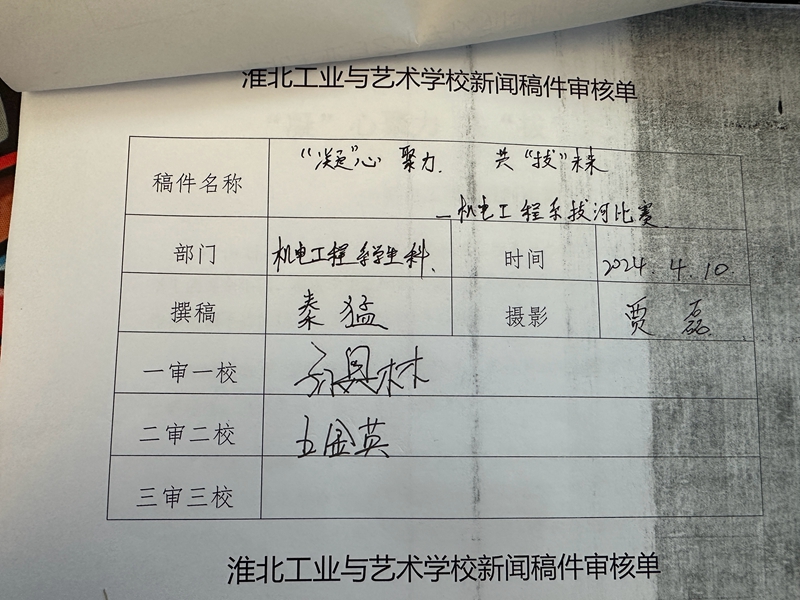 淮北工业与艺术学校新闻稿件审核单
稿件名称
“凝”心 聚力. 共“拔”未来
—机电工程系拔河比赛.
部门 机电工程系学生科. 时间 2024.4.10.
撰稿 秦猛 摄影 贾磊.
一审一校
二审二校 王金英
三审三校
淮北工业与艺术学校新闻稿件审核单